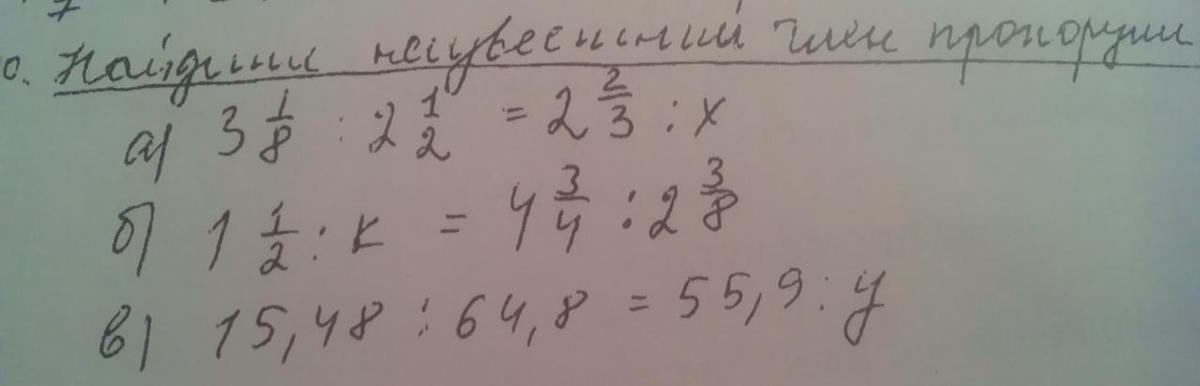 0. Найдиши неизвестный член пропорции
а) 3 1/8 : 2 1/2 = 2 2/3 : x
б) 1 1/2 : к = 4 3/4 : 2 3/8
в) 15,48 : 64,8 = 55,9 : y